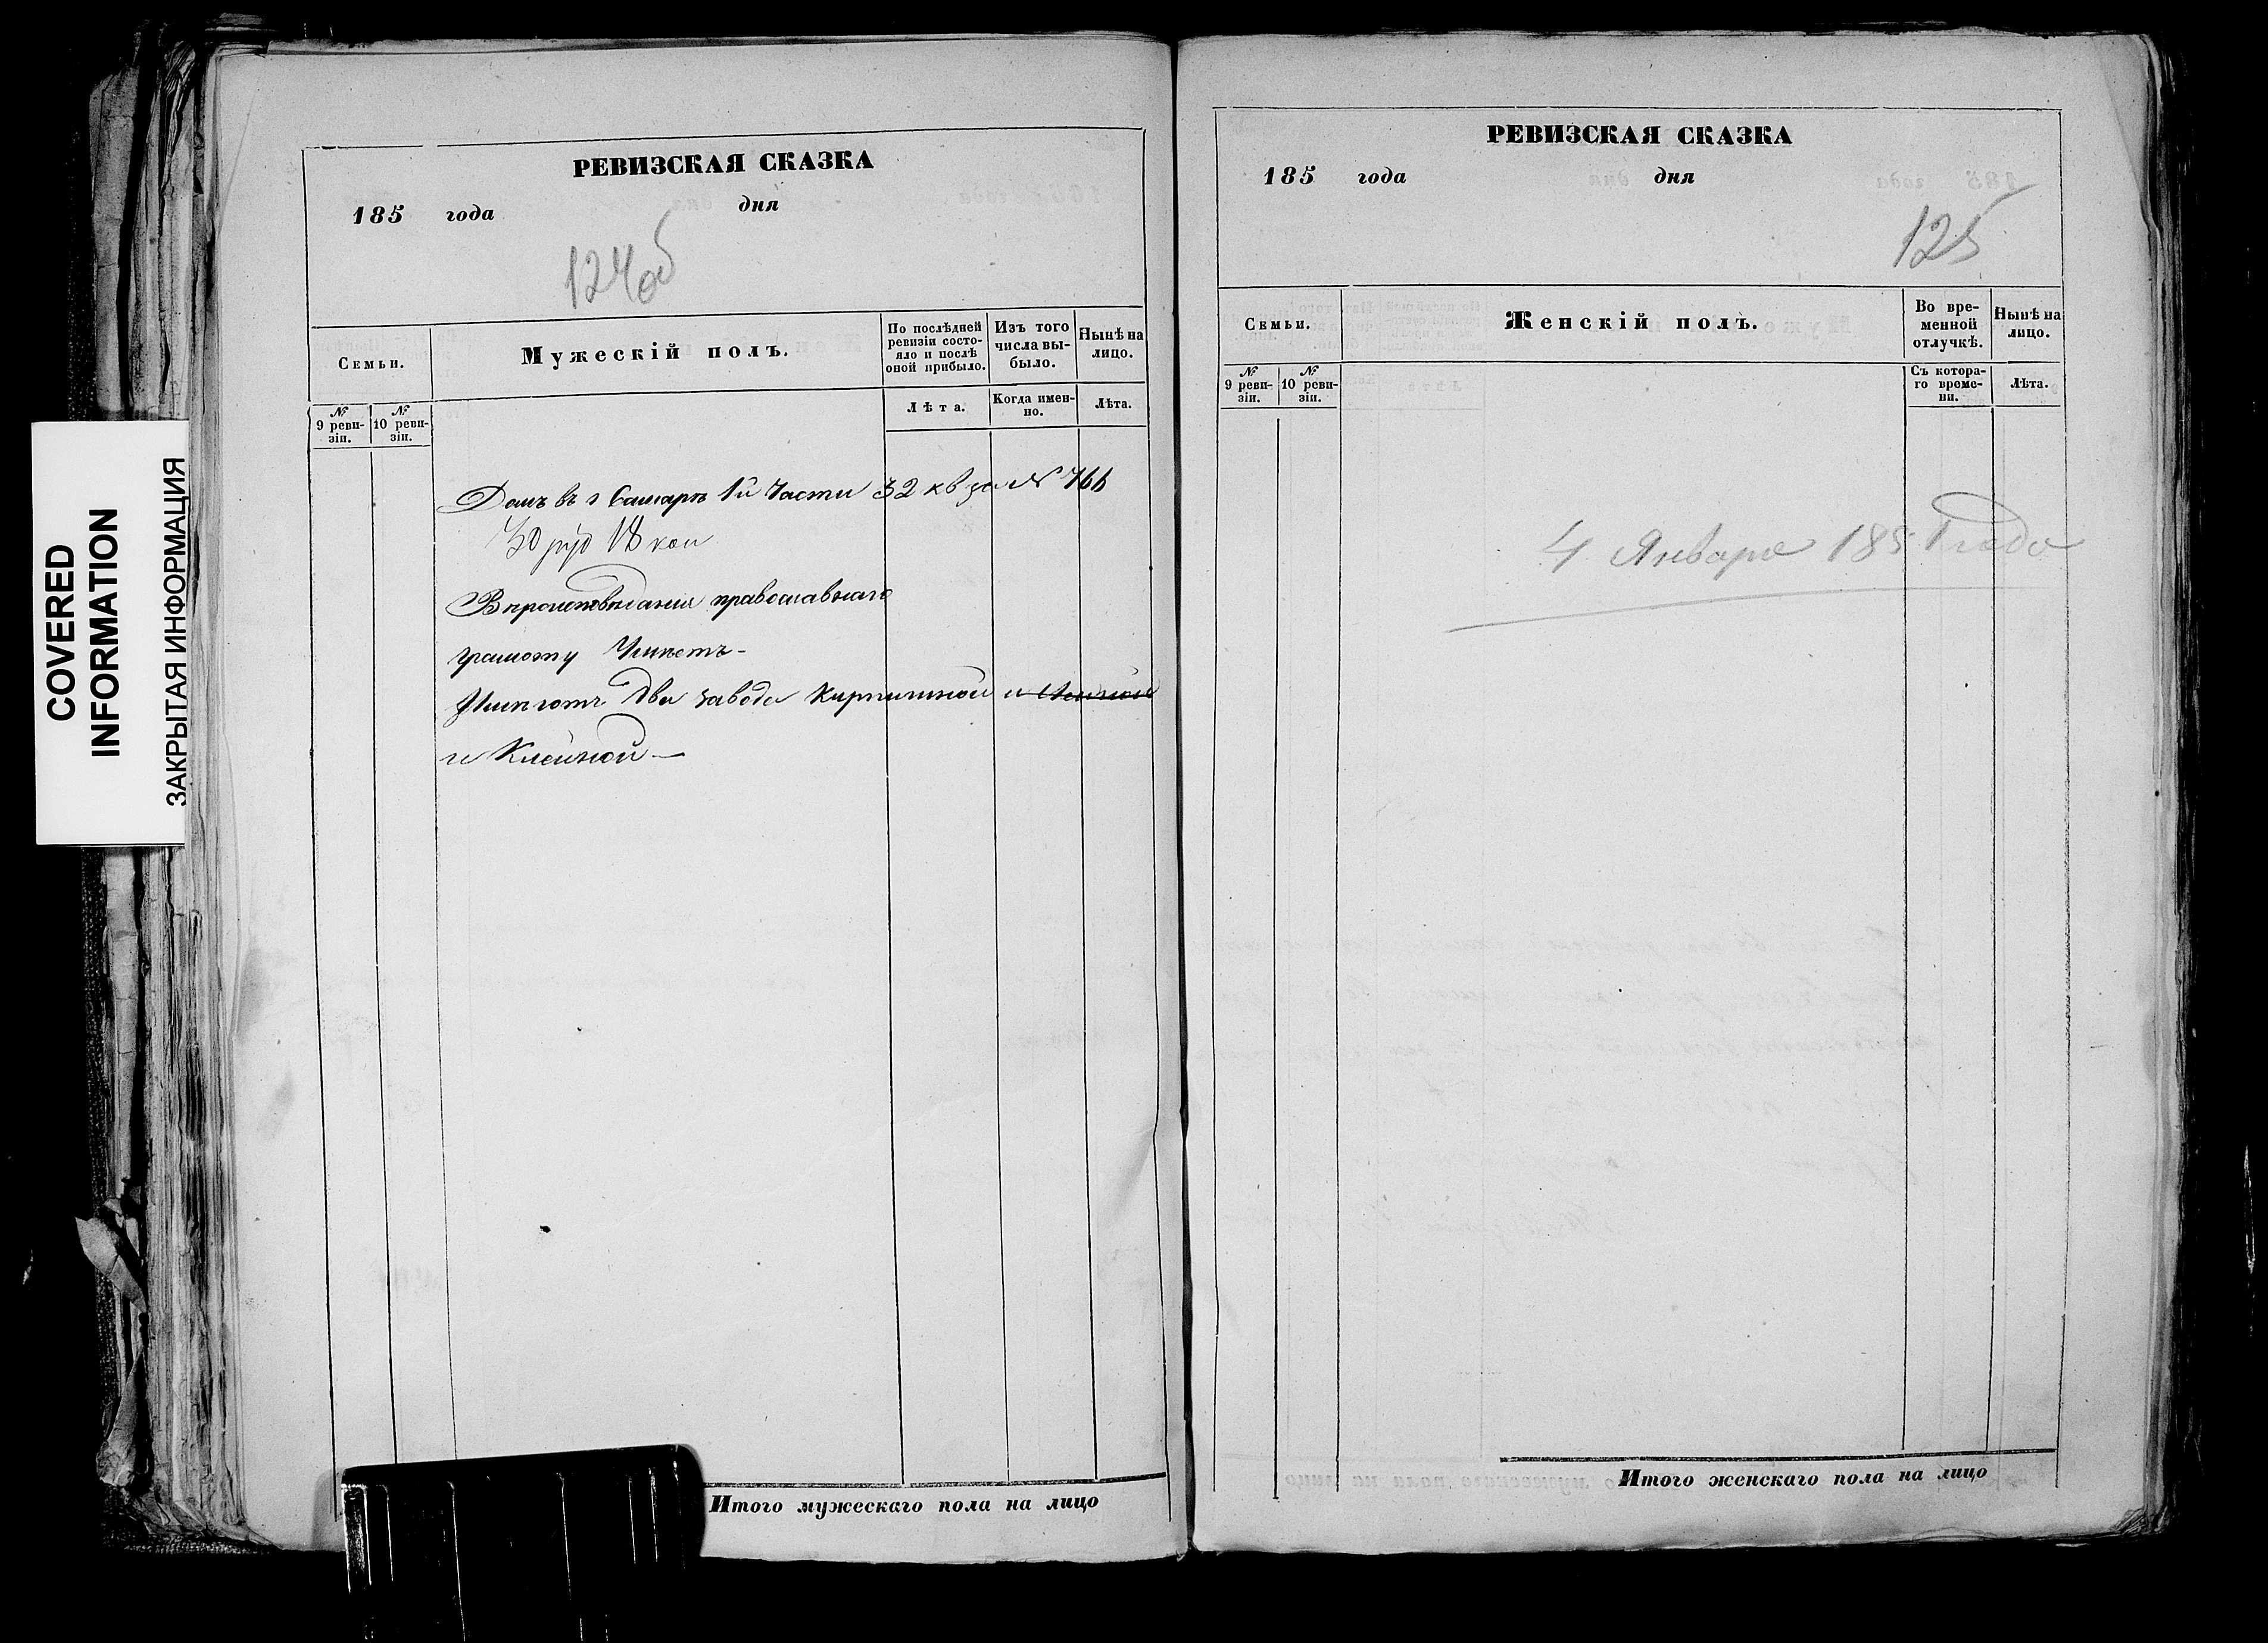 COVERED
INFORMATION
ЗАКРЫТАЯ ИНФОРМАЦИЯ
РЕВИЗСКАЯ СКАЗКА
185 года дня
124об
Семьи.
Мужескій полъ.
По послѣдней
ревизіи состо-
яло и послѣ
оной прибыло.
Изъ того
числа вы-
было.
Нынѣ на
лицо.
№
9 реви-
зіи.
№
10 реви-
зіи.
Лѣта.
Когда имен-
но.
Лѣта.
Домъ въ г Самарѣ 1й Части 32 кв за №
руб 18 коп
Вѣроисповѣданія православнаго
грамоту Умѣетъ-
Имѣютъ два завода кирпичной и
и Клейной —
Итого мужескаго пола на лицо
РЕВИЗСКАЯ СКАЗКА
185 года дня
125
Семьи.
Женскій полъ.
Во вре-
менной
отлучкѣ.
Нынѣ на
лицо.
№
9 реви-
зіи.
№
10 реви-
зіи.
Съ котора-
го време-
ни.
Лѣта.
4 Января 1851 года
Итого женскаго пола на лицо